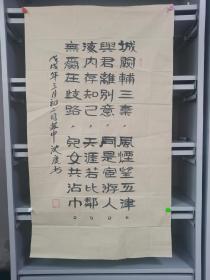 城闕輔三秦　風煙望五津
與君離別意　同是宦游人
海内存知己　天涯若比鄰
無為在歧路　兒女共沾巾
戊戌年三月初二日
书